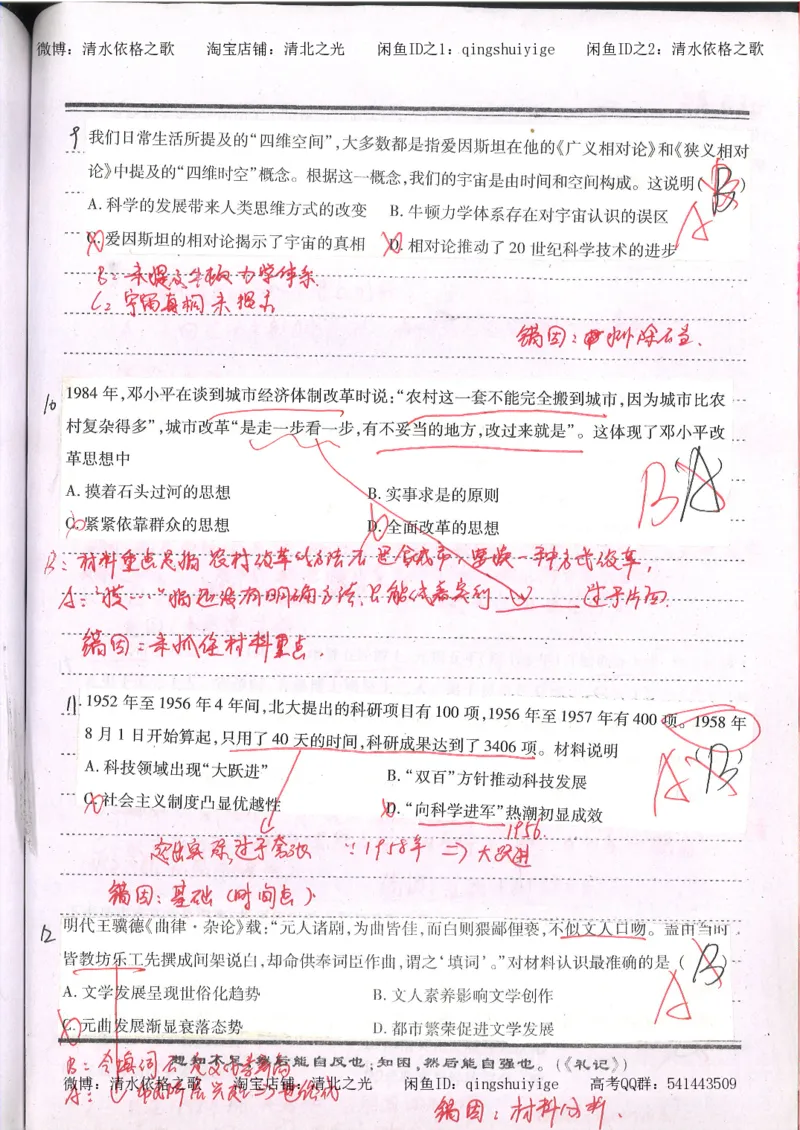 微博：清水依格之歌 淘宝店铺：清北之光 闲鱼ID之1：qingshuiyige 闲鱼ID之2：清水依格之歌
9 我们日常生活所提及的“四维空间”，大多数都是指爱因斯坦在他的《广义相对论》和《狭义相对
论》中提及的“四维时空”概念。根据这一概念，我们的宇宙是由时间和空间构成。这说明( B )
A
A. 科学的发展带来人类思维方式的改变 B. 牛顿力学体系存在对宇宙认识的误区
C. 爱因斯坦的相对论揭示了宇宙的真相 D. 相对论推动了 20 世纪科学技术的进步
B：未提及牛顿力学体系.
C：宇宙真相未揭示
错因：
10 1984 年，邓小平在谈到城市经济体制改革时说：“农村这一套不能完全搬到城市，因为城市比农
村复杂得多”，城市改革“是走一步看一步，有不妥当的地方，改过来就是”。这体现了邓小平改
革思想中 (A)
B
A. 摸着石头过河的思想 B. 实事求是的原则
C. 紧紧依靠群众的思想 D. 全面改革的思想
B：材料重点是指农村改革的方法不适合城市，要换一种方式改革，
A：“摸……”指还没有明确方法，只能代表 过于片面.
错因：未抓住材料重点.
11. 1952 年至 1956 年 4 年间，北大提出的科研项目有 100 项，1956 年至 1957 年有 400 项。1958 年
8 月 1 日开始算起，只用了 40 天的时间，科研成果达到了 3406 项。材料说明
A (B)
A. 科技领域出现“大跃进” B. “双百”方针推动科技发展
C. 社会主义制度凸显优越性 D. “向科学进军”热潮初显成效
1956
过于夸张 ∵1958年 => 大跃进
错因：基础（时间点）
12 明代王骥德《曲律·杂论》载：“元人诸剧，为曲皆佳，而白则猥鄙俚亵，不似文人口吻。盖由当时
皆教坊乐工先撰成间架说白，却命供奉词臣作曲，谓之‘填词’。”对材料认识最准确的是 ( B )
A
A. 文学发展呈现世俗化趋势 B. 文人素养影响文学创作
C. 元曲发展渐显衰落态势 D. 都市繁荣促进文学发展
然后能自反也；知困，然后能自强也。（《礼记》）
微博：清水依格之歌 淘宝店铺：清北之光 闲鱼ID：qingshuiyige 高考QQ群：541443509
错因：材料分析.